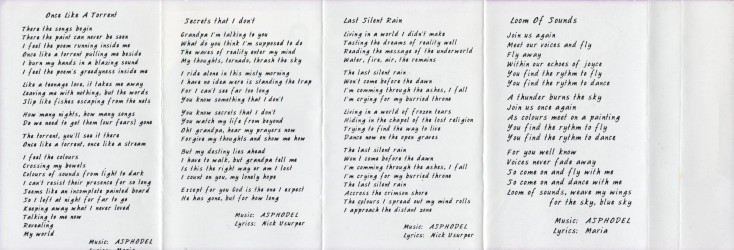 Once Like A Torrent
There the songs begin
There the paint can never be seen
I feel the poem running inside me
Once like a torrent pulling me beside
I burn my hands in a blazing sound
I feel the poem's greedyness inside me
Like a teenage love, it takes me away
Leaving me with nothing, but the words
Slip like fishes escaping from the nets
How many nights, how many songs
Do we need to get them (our fears) gone
The torrent, you'll see it there
Once like a torrent, once like a stream
I feel the colours
Crossing my bowels
Colours of sounds from light to dark
I can't resist their presence for so long
Seems like an incomplete painted board
So I left at night for far to go
Keeping away what I never loved
Talking to me now
Revealing
My world
Music: ASPHODEL
Lyrics: Maria
Secrets that I don't
Grandpa I'm talking to you
What do you think I'm supposed to do
The waves of reality enter my mind
My thoughts, tornado, thrash the sky
I ride alone in this misty morning
I have no idea were is standing the trap
For I can't see far too long
You know something that I don't
You know secrets that I don't
You watch my life from beyond
Oh! grandpa, hear my prayers now
Forgive my thoughts and show me how
But my destiny lies ahead
I have to walk, but grandpa tell me
Is this the right way or am I lost
I count on you, my lonely hope
Except for you God is the one I expect
He has gone, but for how long
Music: ASPHODEL
Lyrics: Nick Usurper
Last Silent Rain
Living in a world I didn't make
Tasting the dreams of reality well
Reading the message of the underworld
Water, fire, air, the remains
The last silent rain
Won't come before the dawn
I'm comming through the ashes, I fall
I'm crying for my burried throne
Living in a world of frozen tears
Hiding in the chapel of the lost religion
Trying to find the way to live
Dance now on the open graves
The last silent rain
Won't come before the dawn
I'm comming through the ashes, I fall
I'm crying for my burried throne
The last silent rain
Accross the crimson shore
The colours I spread out my mind rolls
I approach the distant zone
Music: ASPHODEL
Lyrics: Nick Usurper
Loom Of Sounds
Join us again
Meet our voices and fly
Fly away
Within our echoes of joyce
You find the rythm to fly
You find the rythm to dance
A thunder burns the sky
Join us once again
As colours meet on a painting
You find the rythm to fly
You find the rythm to dance
For you well know
Voices never fade away
So come on and fly with me
So come on and dance with me
Loom of sounds, weave my wings
for the sky, blue sky
Music: ASPHODEL
Lyrics: Maria